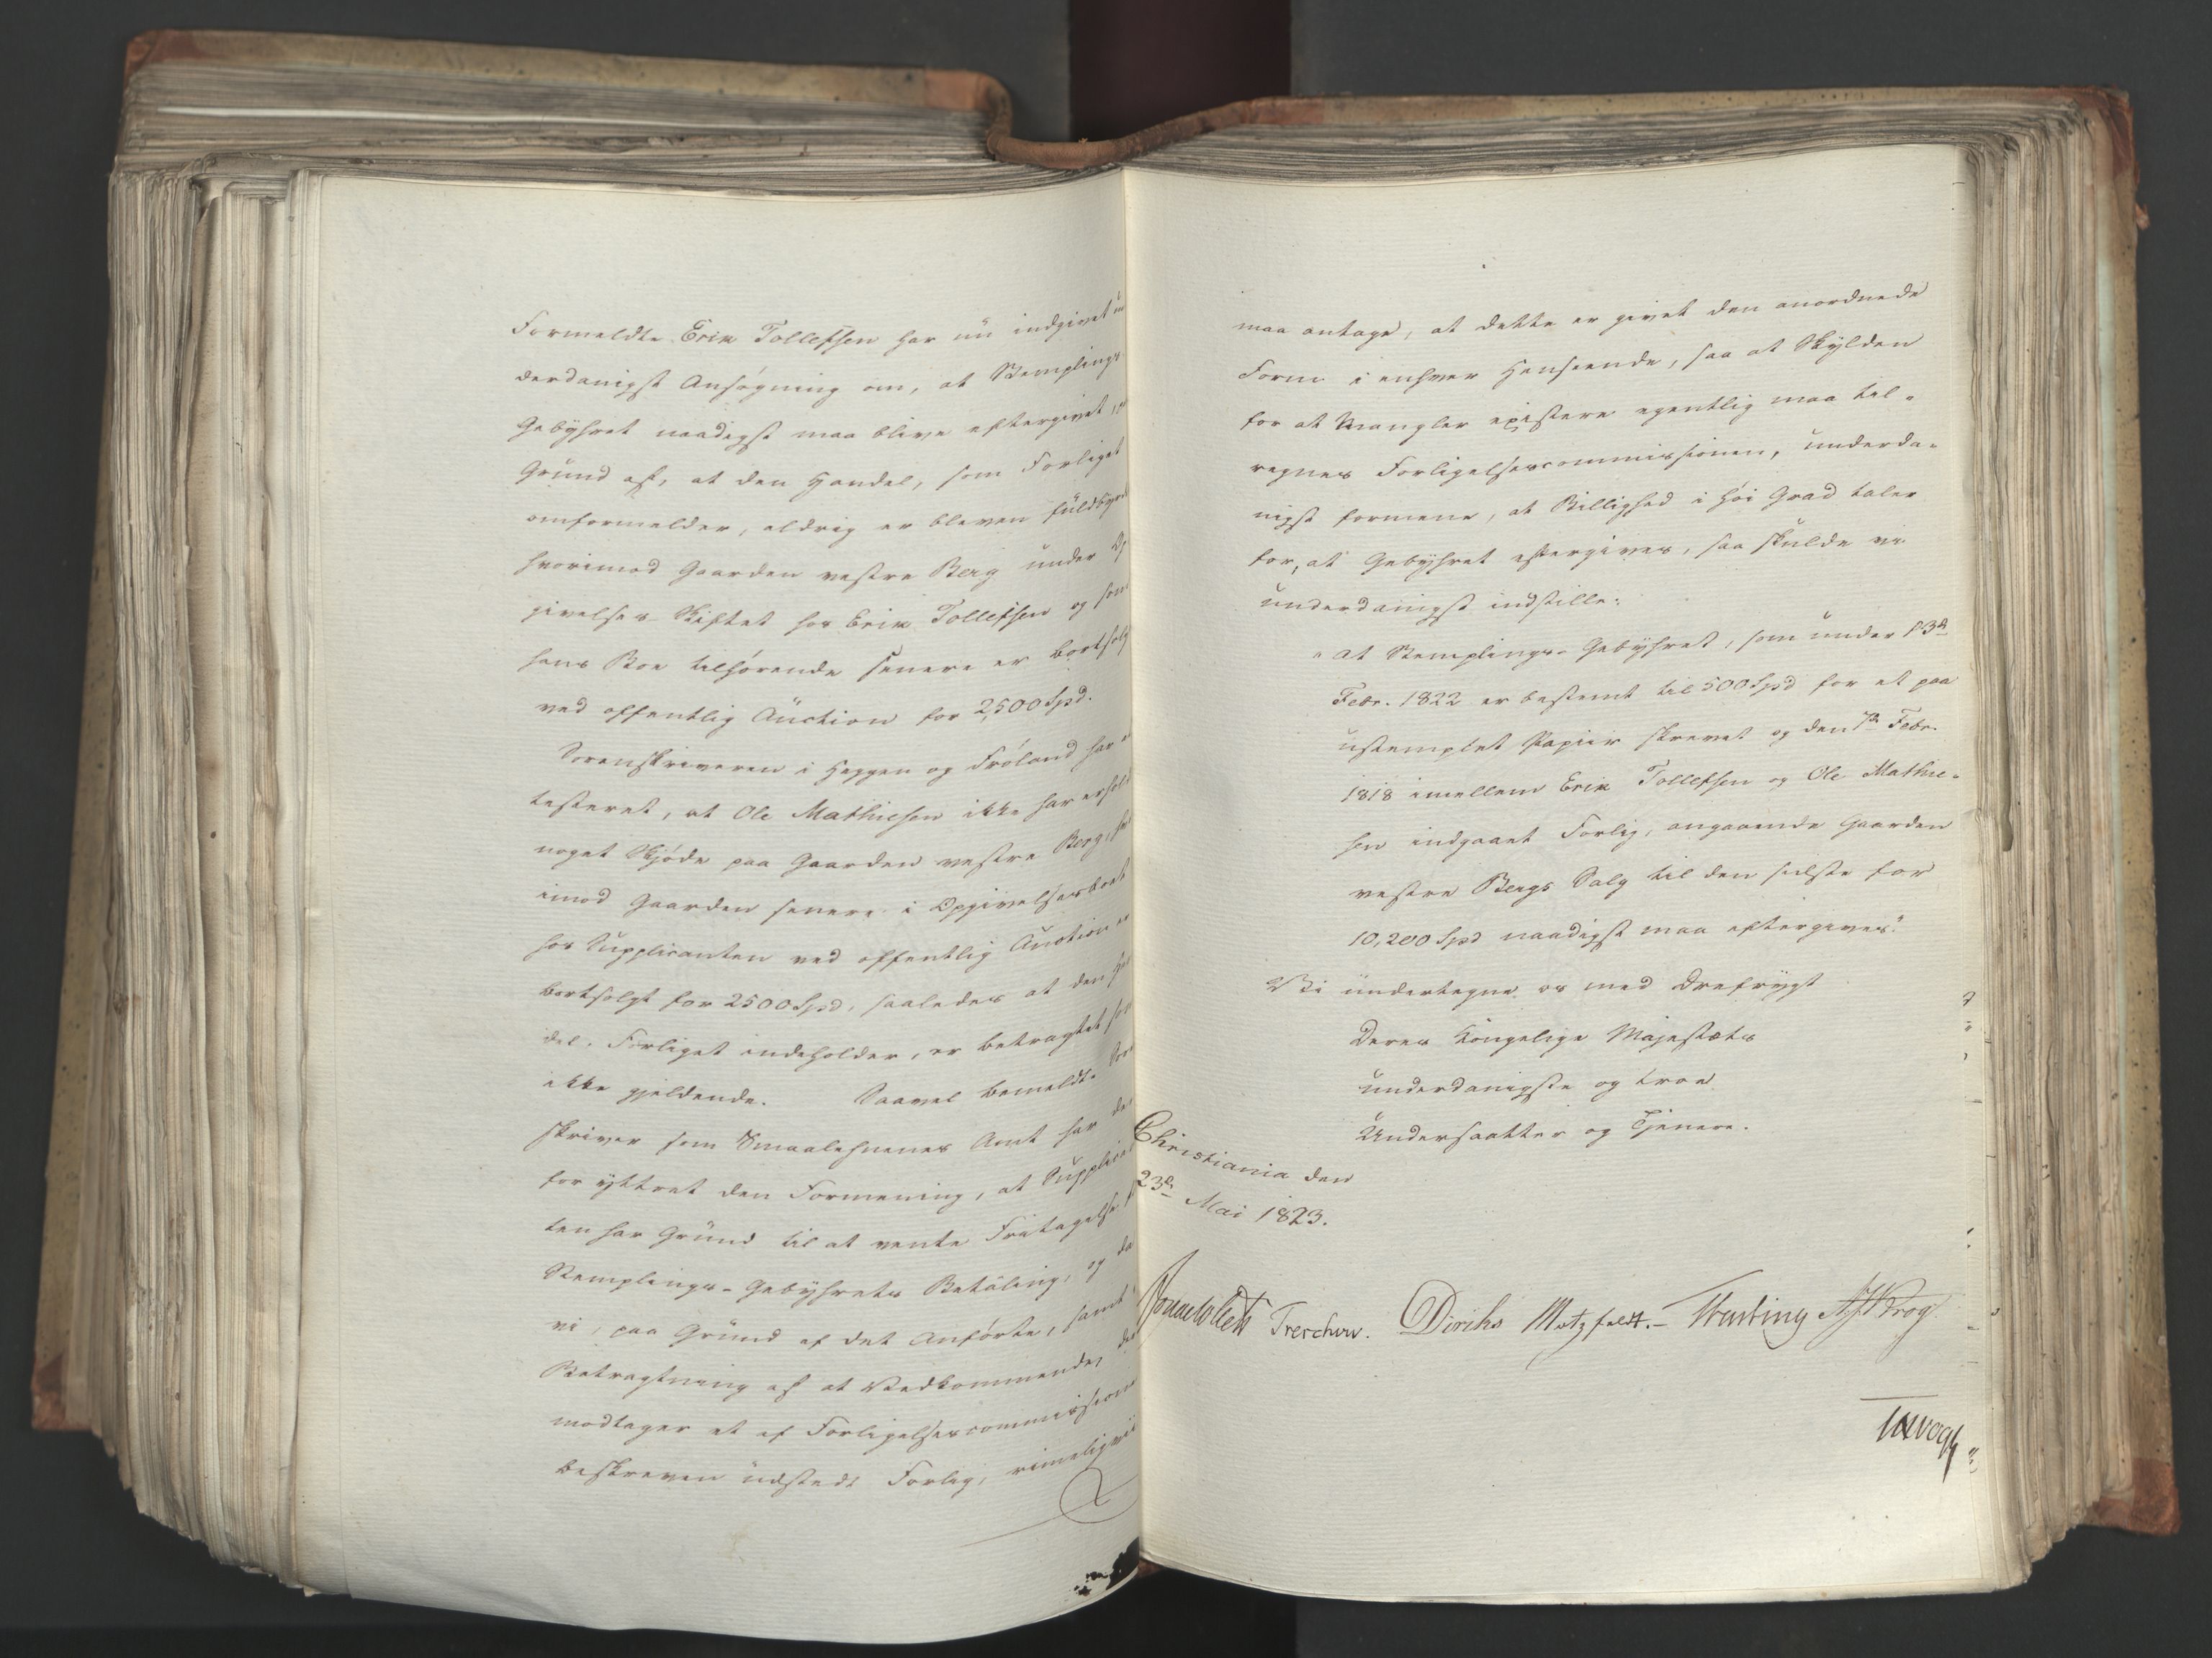 Formeldte Erik Tollefsen har nu indgivet un
derdanigst Ansøgning om, at Stemplings-
Gebyhret naadigst maa blive eftergivet, paa
Grund af, at den Handel, som Forliget
omformelder, aldrig er bleven fuldbyrd
hvorimod Gaarden vestre Berg under Op
givelses-Skiftet hos Erik Tollefsen og som
hans Boe tilhørende senere er bortsolg
ved offentlig Auction for 2,500 Spd.
Sorenskriveren i Heggen og Frøland har
testeret, at Ole Mathiesen ikke har erhold
noget Skjøde paa Gaarden vestre Berg, hvor
imod Gaarden senere i Opgivelsesboet
hos Supplicanten ved offentlig Auction er
bortsolgt for 2500 Spd, saaledes at den Han
del, Forliget indeholder, er betragtet som
ikke gjeldende. Saavel bemeldte Soren
skriver som Smaalehnenes Amt har der
for yttret den Formening, at Supplican
ten har Grund til at vente Fritagelse for
Stemplings-Gebyhrets Betaling, og da
vi, paa Grund af det Anførte, samt i
Betragtning af at Vedkommende, der
modtager et af Forligelsescommissionen
beskreven udstedt Forlig, rimeligviis
maa antage, at dette er givet den anordnede
Form i enhver Henseende, saa at Skylden
for at Mangler existere egentlig maa til-
regnes Forligelsescommissionen, underda-
nigst formene, at Billighed i høi Grad taler
for, at Gebyhret eftergives, saa skulde vi
underdanigst indstille:
"at Stemplings-Gebyhret, som under 13de
Febr. 1822 er bestemt til 500 Spd for et paa
ustemplet Papiir skrevet og den 7de Febr.
1818 imellem Erik Tollefsen og Ole Mathie-
sen indgaaet Forlig, angaaende Gaarden
vestre Bergs Salg til den sidste for
10,200 Spd naadigst maa eftergives."
Vi undertegne os med Ærefrygt
Deres Kongelige Majestæts
underdanigste og troe
Undersaatter og Tjenere.
Christiania den
23de Mai 1823.
Treschow. Diriks Motzfeldt.- Fasting Krog